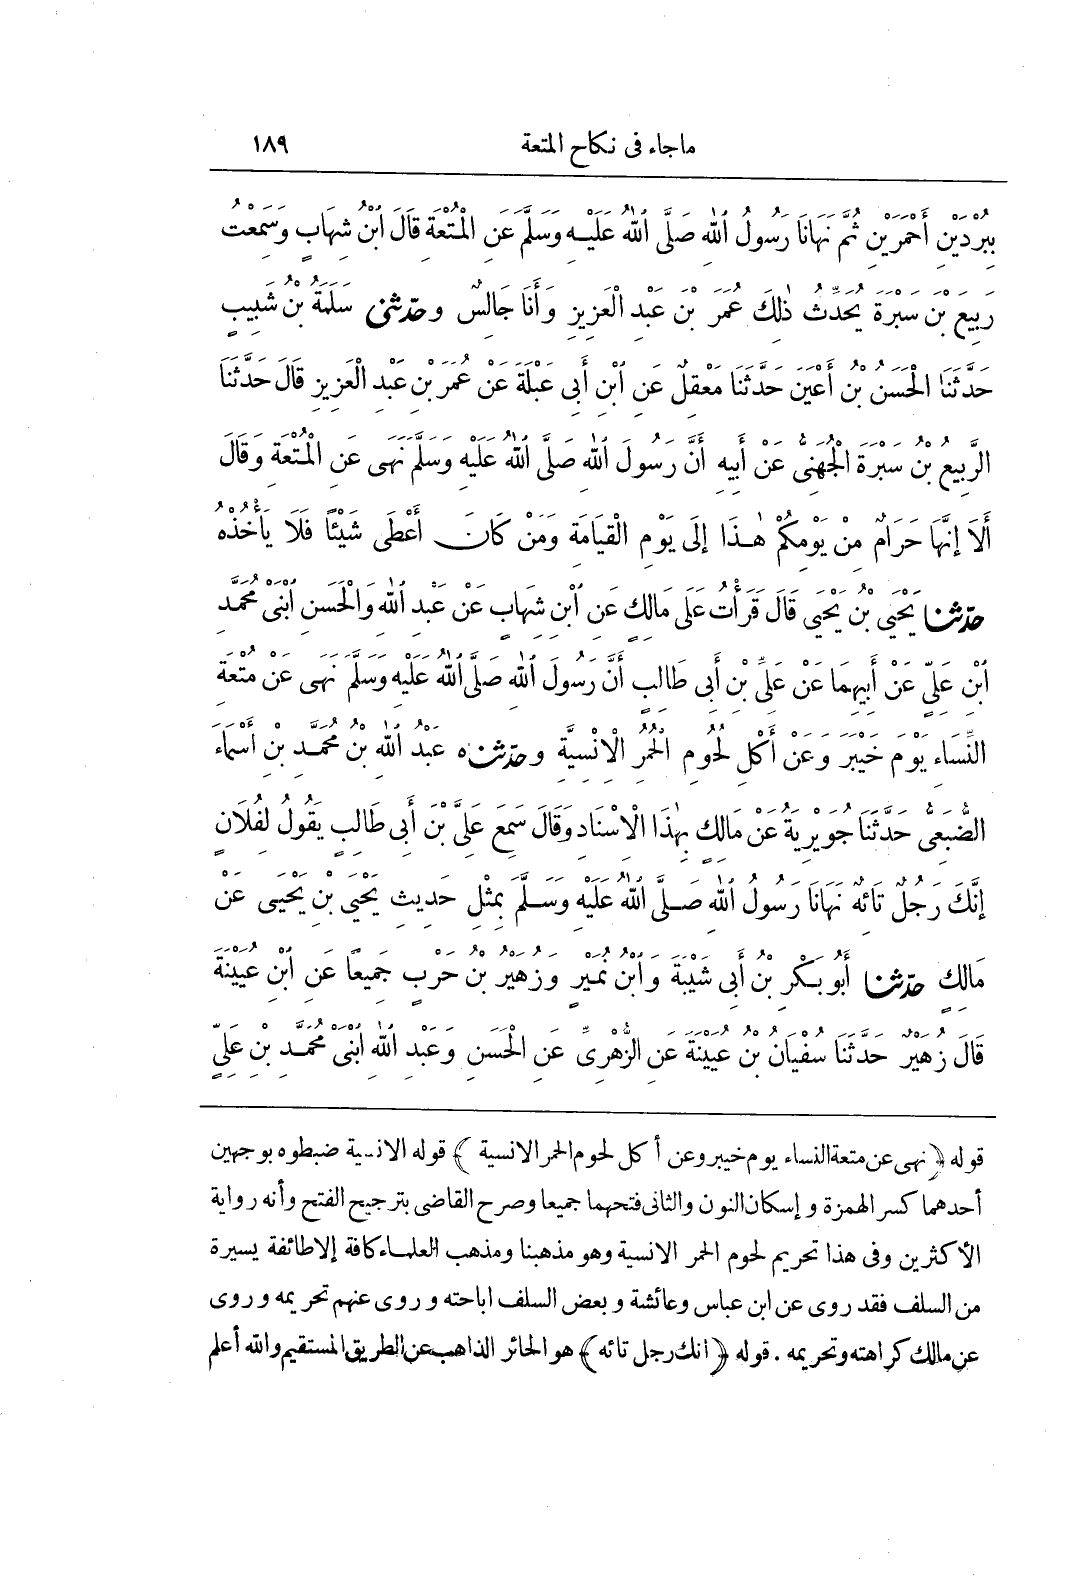 ماجاء فى نكاح المتعة ١٨٩
بِبُرْدَيْنِ أَحْمَرَيْنِ ثُمَّ نَهَانَا رَسُولُ ٱللهِ صَلَّى ٱللهُ عَلَيْهِ وَسَلَّمَ عَنِ الْمُتْعَةِ قَالَ ٱبْنُ شِهَابٍ وَسَمِعْتُ
رَبِيعَ بْنَ سَبْرَةَ يُحَدِّثُ ذٰلِكَ عُمَرَ بْنَ عَبْدِ الْعَزِيزِ وَأَنَا جَالِسٌ وحدّثنى سَلَمَةُ بْنُ شَبِيبٍ
حَدَّثَنَا الْحَسَنُ بْنُ أَعْيَنَ حَدَّثَنَا مَعْقِلٌ عَنِ ٱبْنِ أَبِى عَبْلَةَ عَنْ عُمَرَ بْنِ عَبْدِ الْعَزِيزِ قَالَ حَدَّثَنَا
الرَّبِيعُ بْنُ سَبْرَةَ الْجُهَنِىُّ عَنْ أَبِيهِ أَنَّ رَسُولَ ٱللهِ صَلَّى ٱللهُ عَلَيْهِ وَسَلَّمَ نَهَى عَنِ الْمُتْعَةِ وَقَالَ
أَلَا إِنَّهَا حَرَامٌ مِنْ يَوْمِكُمْ هٰذَا إِلَى يَوْمِ الْقِيَامَةِ وَمَنْ كَانَ أَعْطَى شَيْئًا فَلَا يَأْخُذْهُ
حدّثنا يَحْيَى بْنُ يَحْيَى قَالَ قَرَأْتُ عَلَى مَالِكٍ عَنِ ٱبْنِ شِهَابٍ عَنْ عَبْدِ ٱللهِ وَالْحَسَنِ ٱبْنَىْ مُحَمَّدِ
ٱبْنِ عَلِىٍّ عَنْ أَبِيهِمَا عَنْ عَلِىِّ بْنِ أَبِى طَالِبٍ أَنَّ رَسُولَ ٱللهِ صَلَّى ٱللهُ عَلَيْهِ وَسَلَّمَ نَهَى عَنْ مُتْعَةِ
النِّسَاءِ يَوْمَ خَيْبَرَ وَعَنْ أَكْلِ لُحُومِ الْحُمُرِ الْإِنْسِيَّةِ وحدّثناه عَبْدُ ٱللهِ بْنُ مُحَمَّدِ بْنِ أَسْمَاءَ
الضُّبَعِىُّ حَدَّثَنَا جُوَيْرِيَةُ عَنْ مَالِكٍ بِهٰذَا الْإِسْنَادِ وَقَالَ سَمِعَ عَلِىَّ بْنَ أَبِى طَالِبٍ يَقُولُ لِفُلَانٍ
إِنَّكَ رَجُلٌ تَائِهٌ نَهَانَا رَسُولُ ٱللهِ صَلَّى ٱللهُ عَلَيْهِ وَسَلَّمَ بِمِثْلِ حَدِيثِ يَحْيَى بْنِ يَحْيَى عَنْ
مَالِكٍ حدّثنا أَبُو بَكْرِ بْنُ أَبِى شَيْبَةَ وَٱبْنُ نُمَيْرٍ وَزُهَيْرُ بْنُ حَرْبٍ جَمِيعًا عَنِ ٱبْنِ عُيَيْنَةَ
قَالَ زُهَيْرٌ حَدَّثَنَا سُفْيَانُ بْنُ عُيَيْنَةَ عَنِ الزُّهْرِىِّ عَنِ الْحَسَنِ وَعَبْدِ ٱللهِ ٱبْنَىْ مُحَمَّدِ بْنِ عَلِىٍّ
قوله ﴿نهى عن متعة النساء يوم خيبر وعن أكل لحوم الحمر الانسية﴾ قوله الانسية ضبطوه بوجهين
أحدهما كسر الهمزة وإسكان النون والثانى فتحهما جميعا وصرح القاضى بترجيح الفتح وأنه رواية
الأكثرين وفى هذا تحريم لحوم الحمر الانسية وهو مذهبنا ومذهب العلماء كافة إلا طائفة يسيرة
من السلف فقد روى عن ابن عباس وعائشة وبعض السلف اباحته وروى عنهم تحريمه وروى
عن مالك كراهته وتحريمه . قوله ﴿انك رجل تائه﴾ هو الحائر الذاهب عن الطريق المستقيم والله أعلم